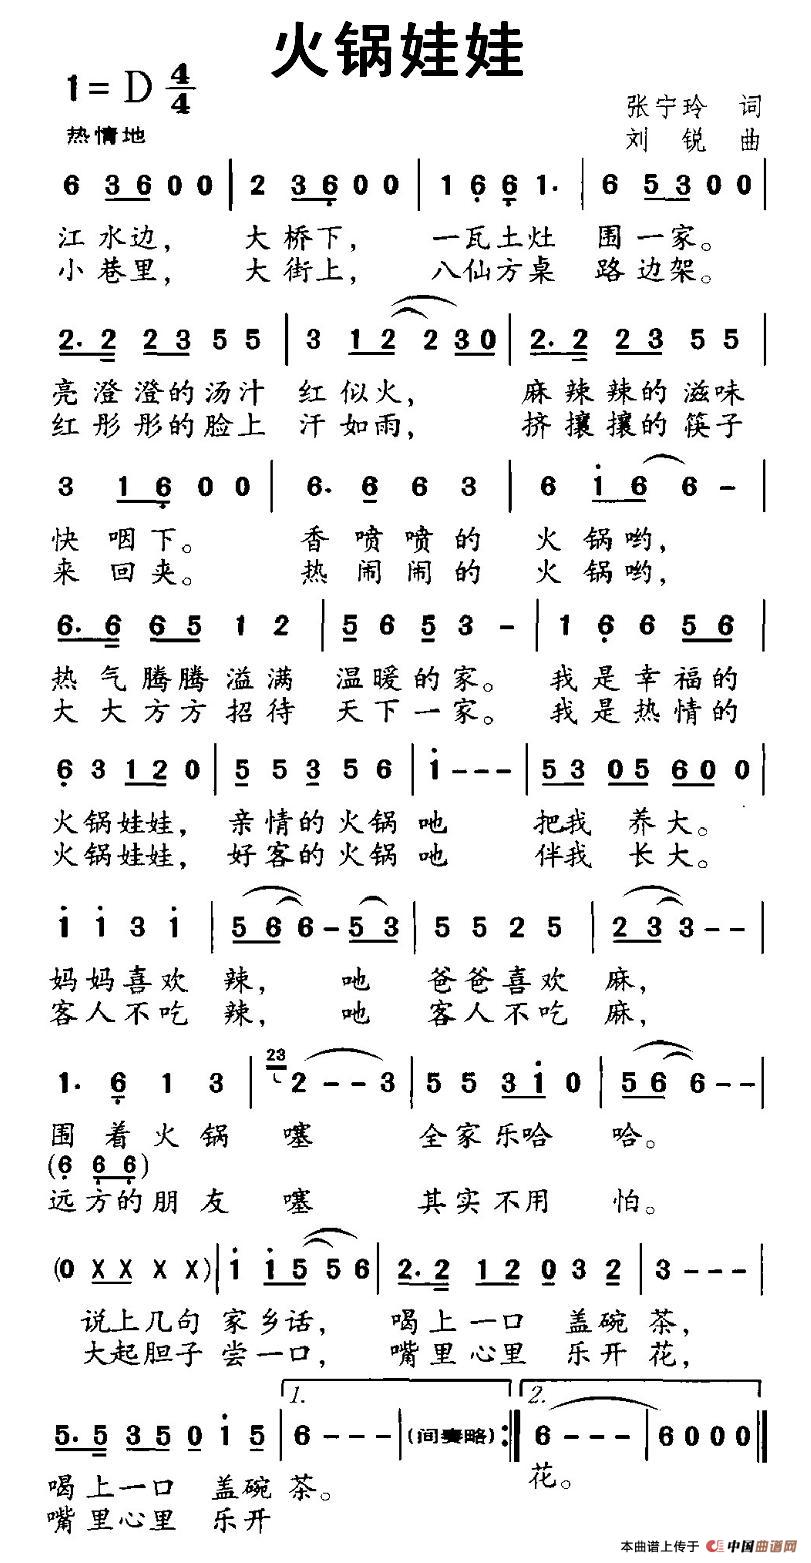 火锅娃娃
1=D 4/4
张宁玲 词
热情地
刘 锐 曲
6 3 6 0 0 | 2 3 6 0 0 | 1 6 6 1. | 6 5 3 0 0 |
江水边， 大桥下， 一瓦土灶 围一家。
小巷里， 大街上， 八仙方桌 路边架。
2. 2 2 3 5 5 | 3 1 2 2 3 0 | 2. 2 2 3 5 5 |
亮澄澄的汤汁 红似火， 麻辣辣的滋味
红彤彤的脸上 汗如雨， 挤攘攘的筷子
3 1 6 0 0 | 6. 6 6 3 | 6 1 6 6 - |
快咽下。 香喷喷的 火锅哟，
来回夹。 热闹闹的 火锅哟，
6. 6 6 5 1 2 | 5 6 5 3 - | 1 6 6 5 6 |
热气腾腾溢满 温暖的家。 我是幸福的
大大方方招待 天下一家。 我是热情的
6 3 1 2 0 | 5 5 3 5 6 | 1 - - - | 5 3 0 5 6 0 0 |
火锅娃娃， 亲情的火锅吔 把我 养大。
火锅娃娃， 好客的火锅吔 伴我 长大。
1 1 3 1 | 5 6 6 - 5 3 | 5 5 2 5 | 2 3 3 - - |
妈妈喜欢 辣， 吔 爸爸喜欢 麻，
客人不吃 辣， 吔 客人不吃 麻，
1. 6 1 3 | 23 2 - - 3 | 5 5 3 1 0 | 5 6 6 - - |
围着火锅 噻 全家乐哈 哈。
(6 6 6)
远方的朋友 噻 其实不用 怕。
(0 X X X X) | 1 1 5 5 6 | 2. 2 1 2 0 3 2 | 3 - - - |
说上几句 家乡话， 喝上一口 盖碗茶，
大起胆子 尝一口， 嘴里心里 乐开花，
1. 2.
5. 5 3 5 0 1 5 | 6 - - - | (间奏略) :| 6 - - - | 6 0 0 0 ||
喝上一口 盖碗茶。 花。
嘴里心里 乐开
本曲谱上传于 中国曲谱网